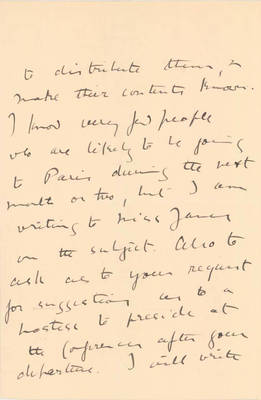 to distribute them, &
make their contents known.
I know very few people
who are likely to be going
to Paris during the next
month or two, but I am
writing to Miss James
on the subject. Also to
ask as to your request
for suggestions as to a
hostess to preside at
the Conferences after your
departure. I will write